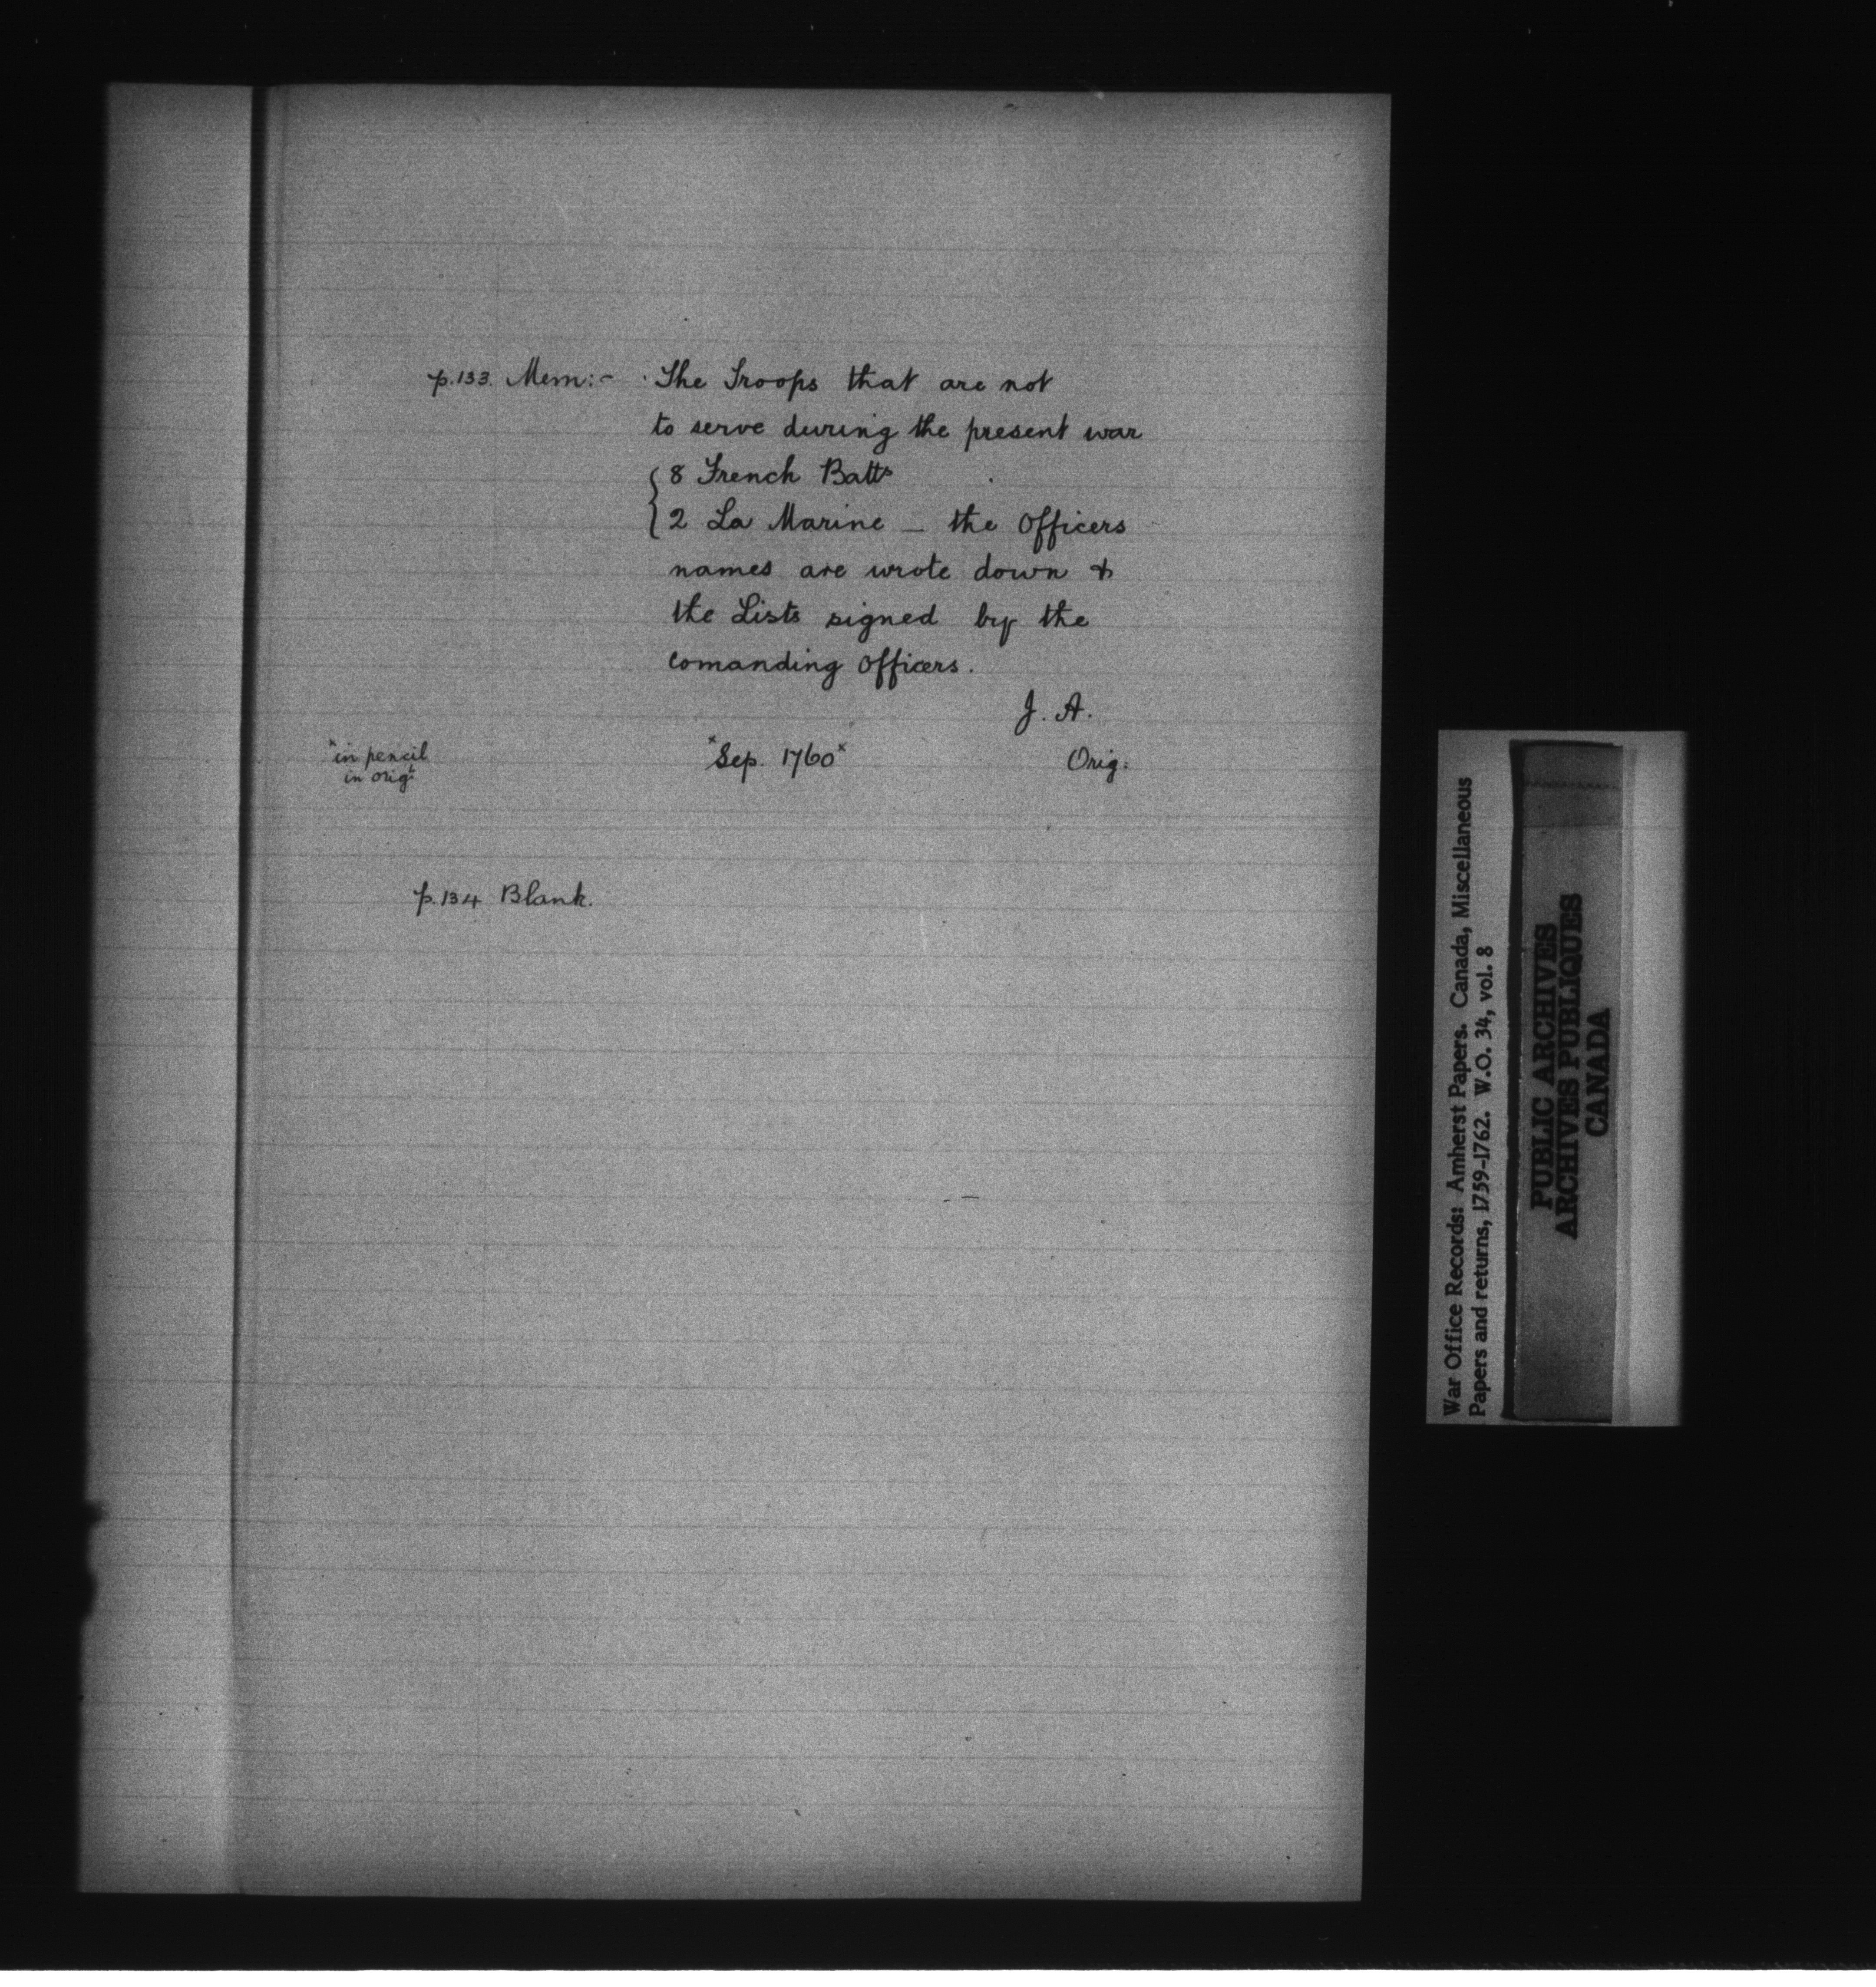 p.133. Mem:- The Troops that are not
to serve during the present war
{ 8 French Batts
2 La Marine _ the Officers
names are wrote down &
the Lists signed by the
Comanding Officers.
J. A.
*in pencil
in origl
*Sep. 1760*
Orig:
p.134 Blank.
War Office Records: Amherst Papers. Canada, Miscellaneous
Papers and returns, 1759-1762. W.O. 34, vol. 8
PUBLIC ARCHIVES
ARCHIVES PUBLIQUES
CANADA